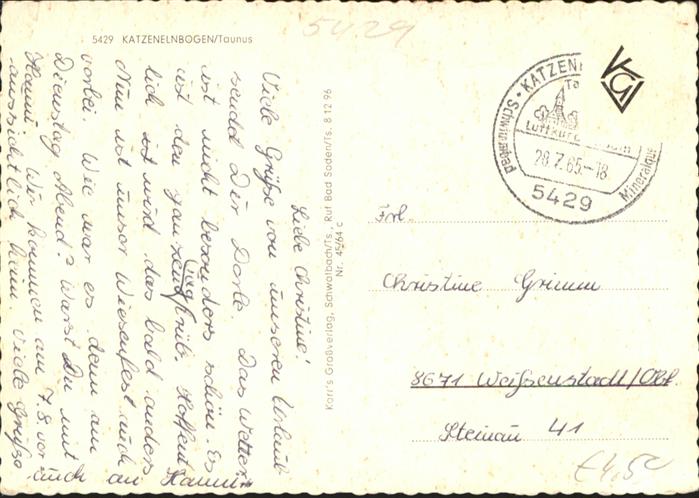 5429 KATZENELNBOGEN/Taunus
5429
Liebe Christine!
Viele Grüße von unseren Urlaub
sendet Dir Dorle. Das Wetter
ist nicht besonders schön. Es
ist den ganzen Tag trüb. Hoffent
lich ist wird das bald anders
Nun ist unser Wiesenfest auch
vorbei. Wie war es denn am
Dienstag Abend? Warst Du mit
Hanni Wir kommen am 7.8. vor
aussichtlich heim Viele Grüße
auch an Hanni
Karl's Großverlag, Schwalbach/Ts., Ruf Bad Soden/Ts. 8 12 96
Nr. 45/64 c
KATZEN
Schwimmbad
Luftkurort
28.7.65.-18
Mineralqu
5429
Frl.
Christine Grimm
8671 Weißenstadt/Obf.
Steinau 41
€4,50